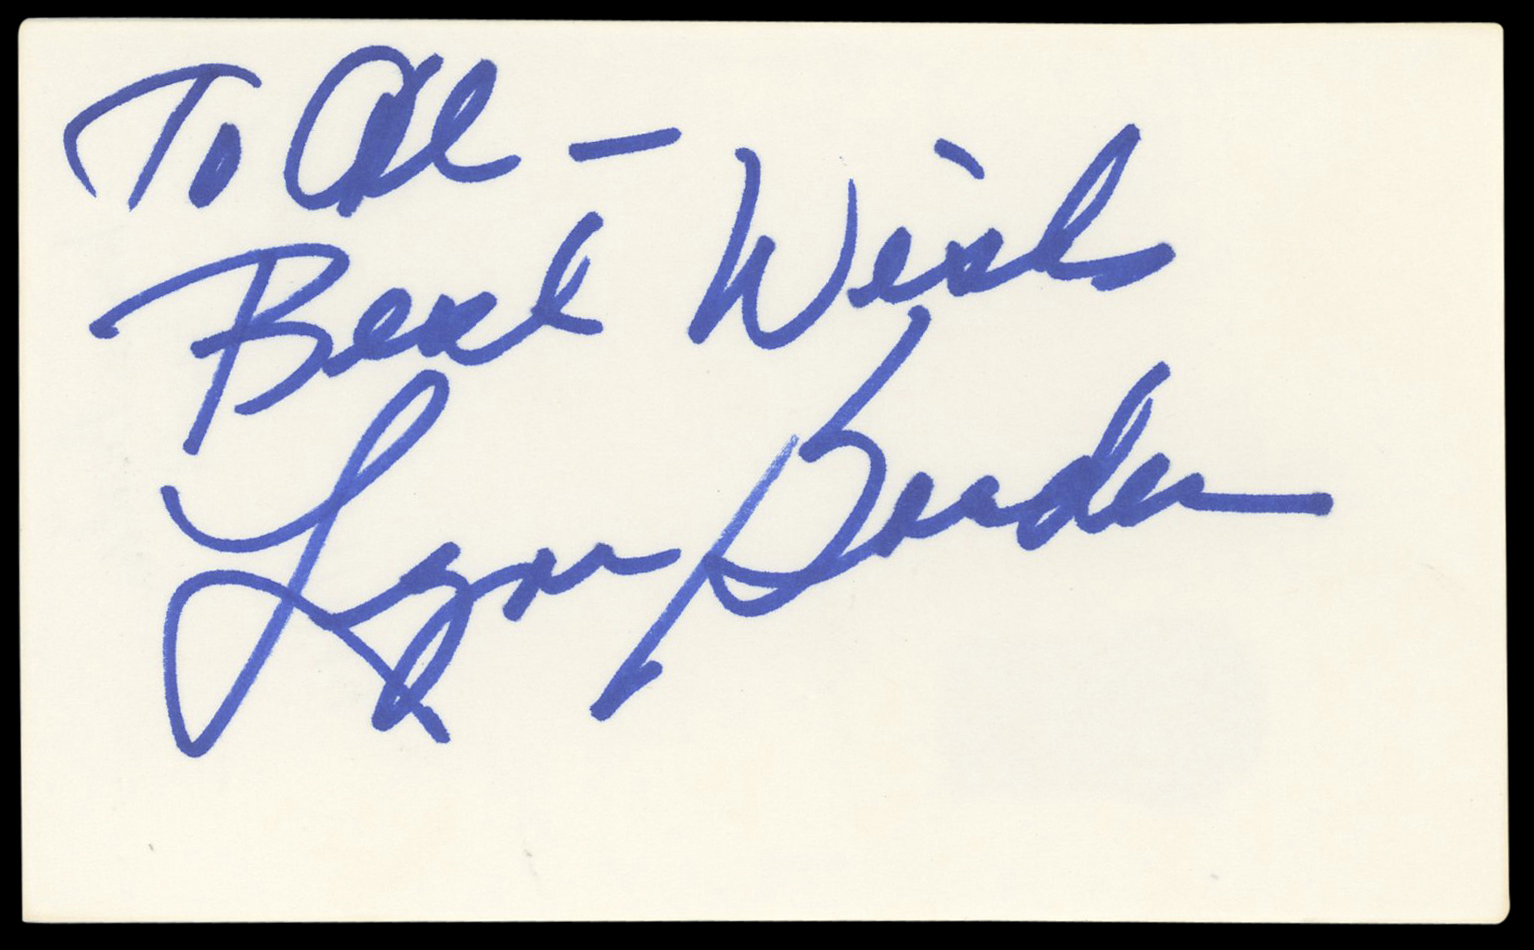 To Al -
Best Wishes
Lynn Borden